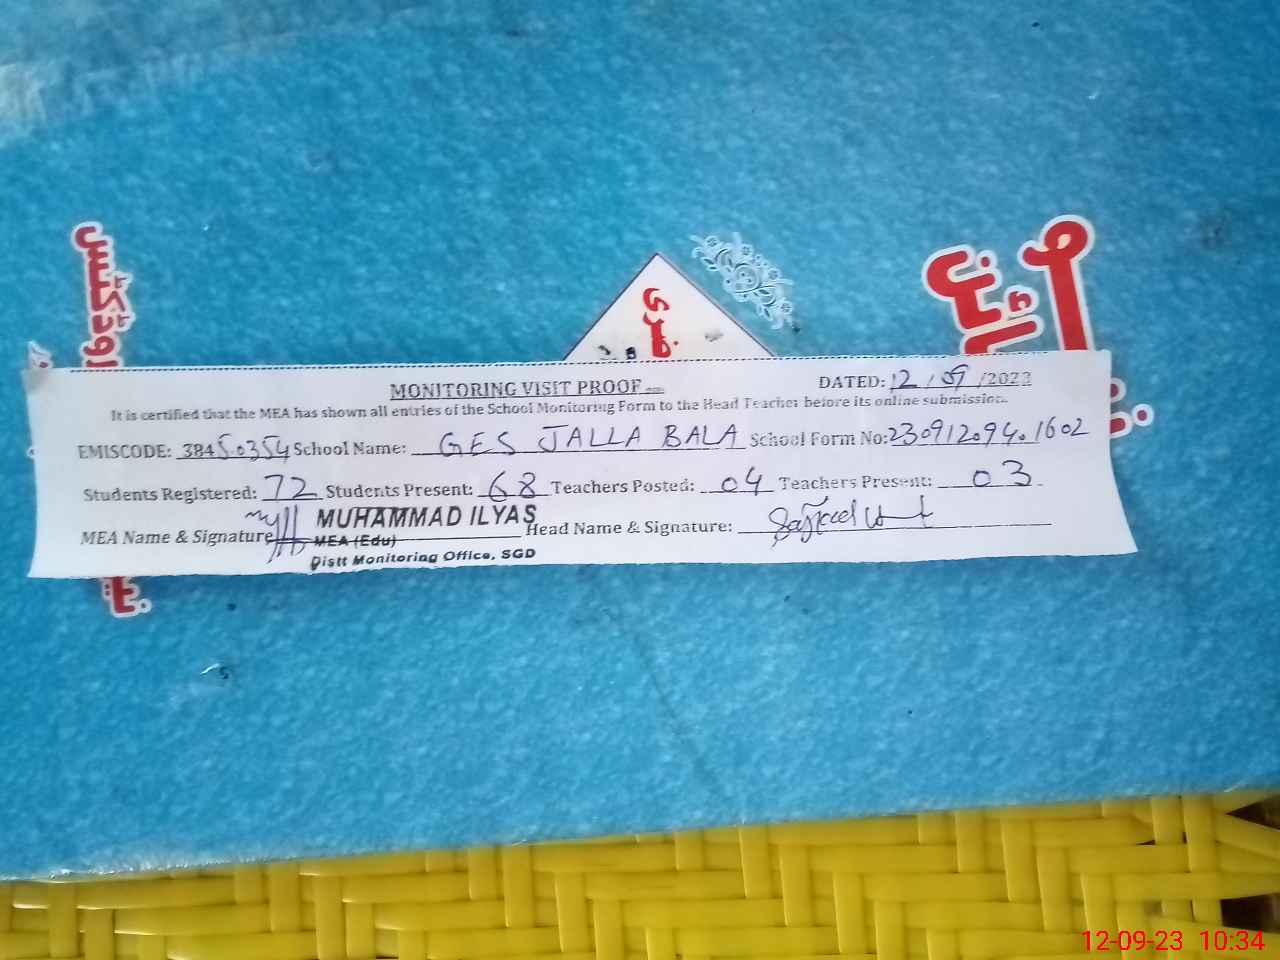 MONITORING VISIT PROOF
DATED: 12/09/2023
It is certified that the MEA has shown all entries of the School Monitoring Form to the Head Teacher before its online submission.
EMISCODE: 38450354 School Name: GES JALLA BALA School Form No: 230912094.1602
Students Registered: 72 Students Present: 68 Teachers Posted: 04 Teachers Present: 03
MEA Name & Signature MUHAMMAD ILYAS Head Name & Signature:
MEA (Edu)
Distt Monitoring Office, SGD
12-09-23 10:34